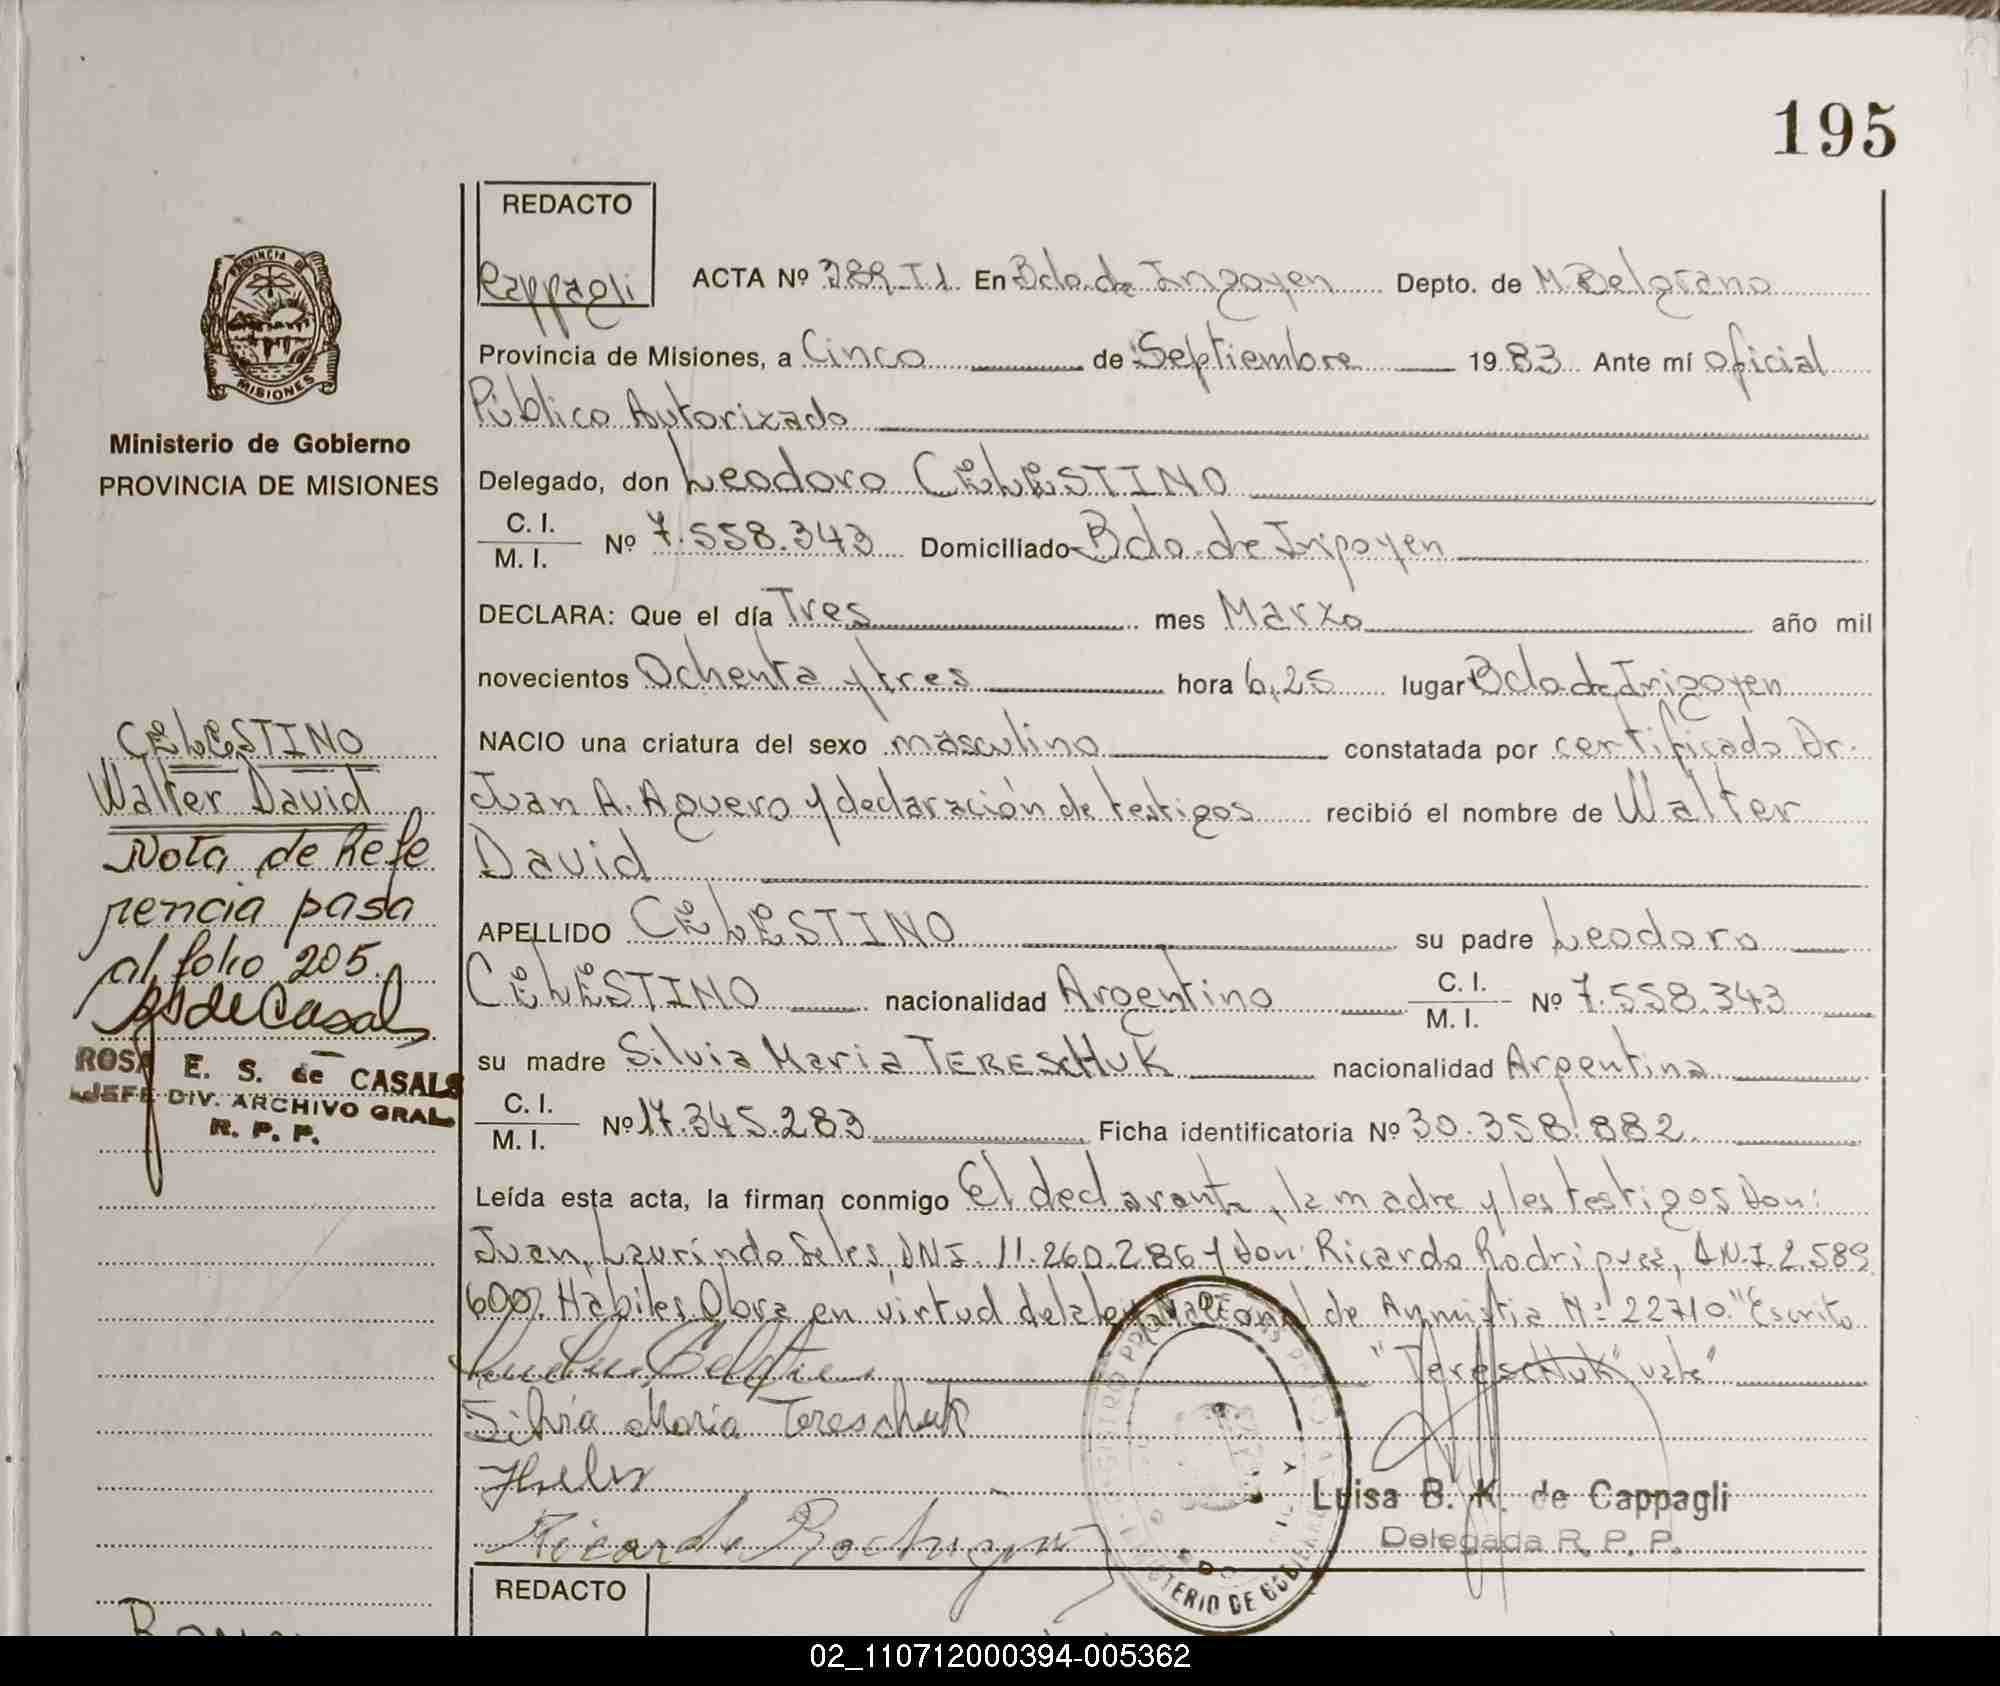 195
REDACTO
Cappagli
ACTA Nº 389 T1. En Bdo. de Irigoyen Depto. de M. Belgrano
Provincia de Misiones, a Cinco de Septiembre 1983 Ante mí Oficial
Público Autorizado
Delegado, don Leodoro CELESTINO
C. I.
M. I. Nº 7.558.343 Domiciliado Bdo. de Irigoyen
DECLARA: Que el día Tres mes Marzo año mil
novecientos Ochenta y tres hora 6,25 lugar Bdo. de Irigoyen
NACIO una criatura del sexo masculino constatada por certificado Dr.
Juan A. Aguero y declaración de testigos recibió el nombre de Walter
David
APELLIDO CELESTINO su padre Leodoro
CELESTINO nacionalidad Argentino C. I.
M. I. Nº 7.558.343
su madre Silvia Maria TERESCHUK nacionalidad Argentina
C. I.
M. I. Nº 17.345.283 Ficha identificatoria Nº 30.358.882
Leída esta acta, la firman conmigo El declarante, la madre y los testigos Don:
Juan, Laurindo Seles, DNI. 11.260.286 y Don: Ricardo Rodrigues, DN.I. 2.589
600. Habiles. Obra en virtud de la ley Nacional de Anmistia Nº 22710. "Escrito
"TeresCHUK" vale"
Silvia Maria Tereschuk
Ricardo Rodrigues
Luisa B. K. de Cappagli
Delegada R. P. P.
MINISTERIO DE GOBIERNO
REDACTO
PROVINCIA DE
MISIONES
Ministerio de Gobierno
PROVINCIA DE MISIONES
CELESTINO
Walter David
Nota de Refe
rencia pasa
al folio 205.
ROSA E. S. de CASALS
JEFE DIV. ARCHIVO GRAL.
R. P. P.
02_110712000394-005362